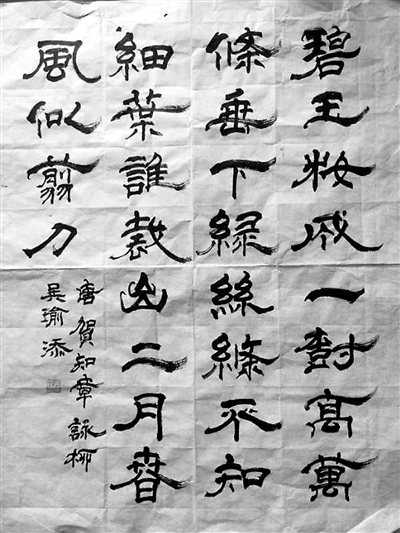 碧玉妝成一對高萬
條垂下緑絲絛不知
細葉誰裁出二月春
風似翦刀
唐賀知章詠柳
吳瑜添